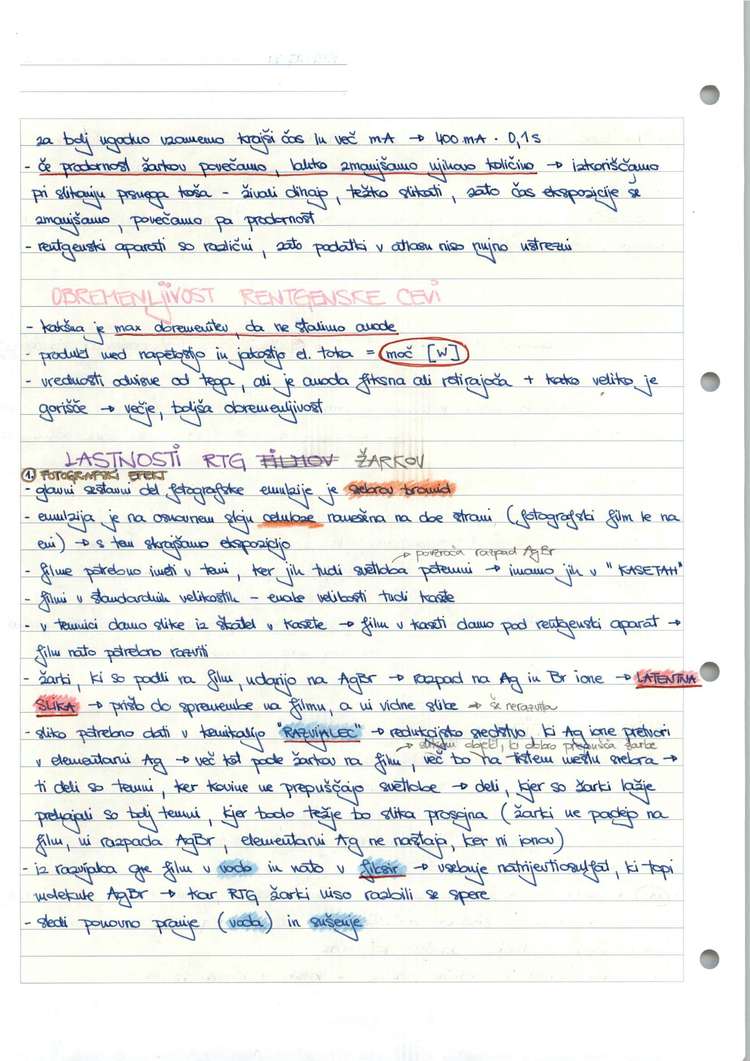 za bolj ugodno vzamemo krajši čas in več mA → 400 mA · 0,1s
- če prodornost žarkov povečamo, lahko zmanjšamo njihovo količino → izkoriščamo
pri slikanju prsnega koša - živali dihajo, težko slikati, zato čas ekspozicije se
zmanjšamo, povečamo pa prodornost
- rentgenski aparati so različni, zato podatki v atlasu niso nujno ustrezni
OBREMENLJIVOST RENTGENSKE CEVI
- kakšna je max obremenitev, da ne stalimo anode
- produkt med napetostjo in jakostjo el. toka = moč [W]
- vrednosti odvisne od tega, ali je anoda fiksna ali rotirajoča + kako veliko je
gorišče → večje, boljša obremenljivost
LASTNOSTI RTG FILMOV ŽARKOV
1. FOTOGRAFSKI EFEKT
- glavni sestavni del fotografske emulzije je srebrov bromid
- emulzija je na osnovnem sloju celuloze nanešena na obe strani (fotografski film le na
eni) → s tem skrajšamo ekspozicijo
→ povzroča razpad AgBr
- filme potrebno imeti v temi, ker jih tudi svetloba potemni → imamo jih v "KASETAH"
- filmi v standardnih velikostih - enake velikosti tudi kasete
- v temnici damo slike iz škatel v kasete → film v kaseti damo pod rentgenski aparat →
film nato potrebno razviti
- žarki, ki so padli na film, udarijo na AgBr → razpad na Ag in Br ione → LATENTNA
SLIKA → prišlo do spremembe na filmu, a ni vidne slike → še nerazvita
- sliko potrebno dati v kemikalijo "RAZVIJALEC" → redukcijsko sredstvo, ki Ag ione pretvori
→ slikam objekt, ki dobro prepušča žarke
v elementarni Ag → več kot pade žarkov na film, več bo na tistem mestu srebra →
ti deli so temni, ker kovine ne prepuščajo svetlobe → deli, kjer so žarki lažje
prehajali so bolj temni, kjer bodo težje bo slika prosojna (žarki ne padejo na
film, ni razpada AgBr, elementarni Ag ne nastaja, ker ni ionov)
- iz razvijalca gre film v vodo in nato v fiksir → vsebuje natrijevtiosulfat, ki topi
molekule AgBr → kar RTG žarki niso razbili se spere
- sledi ponovno pranje (voda) in sušenje